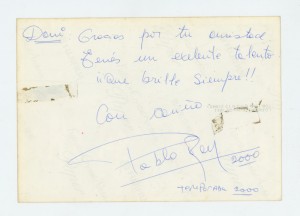 Dani Gracias por tu amistad
Tenés un exelente talento
que brille siempre!!
Con cariño
Pablo Rey 2000
TEMPERLEY 2000